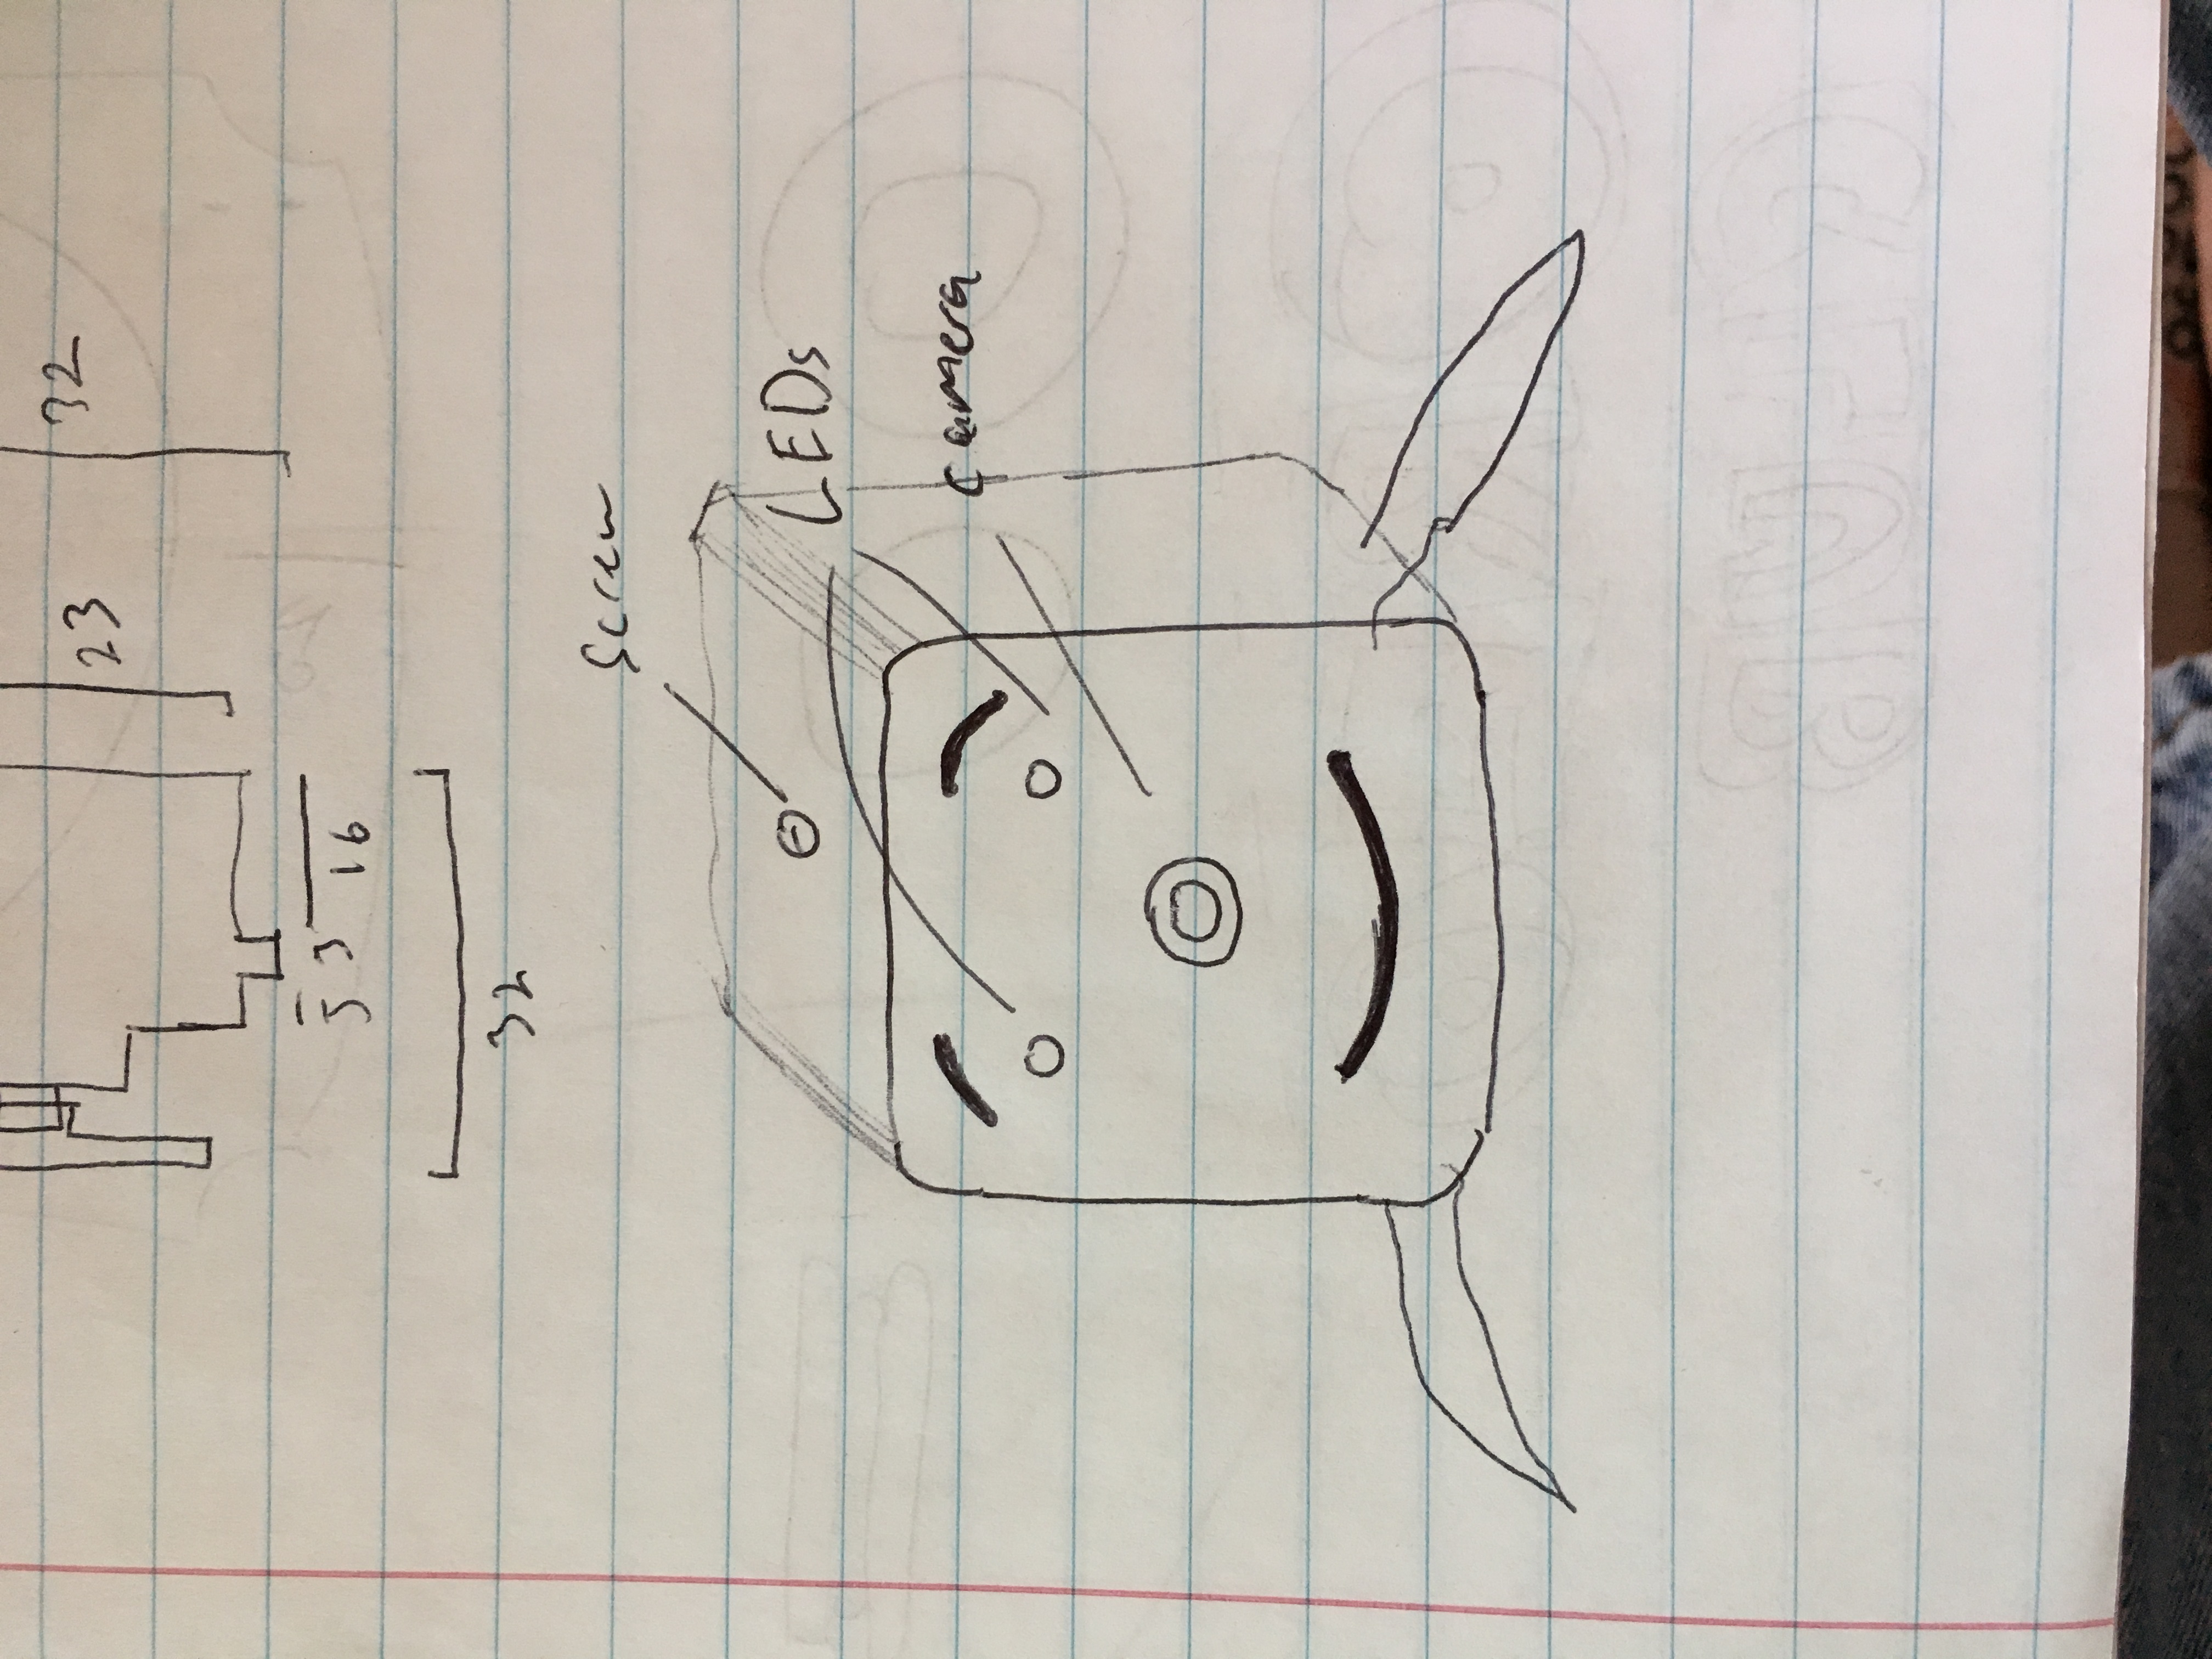 32
23
5 3 16
32
screw
LEDs
camera